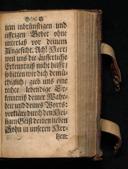 sein inbrünstiges und
eifferiges Gebet ohne
unterlaß vor deinem
Angesicht. Ach! Herr,
weil uns die äusserliche
Erkentniß nicht hilfft,
so bitten wir dich demü-
thiglich, gieb uns eine
rechte lebendige Er-
kenntniß deiner Wahr-
heit und deines Worts:
verkläre durch den Hei-
ligen Geist deinen lieben
Sohn in unseren Her-
tzen: